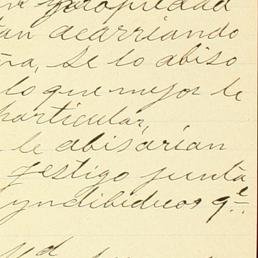 propiedad
tan acarriando
ña, se lo abiso
lo que mejor le
particular,
le abisarian
testigo junta
yndibiduos q.e
Ud